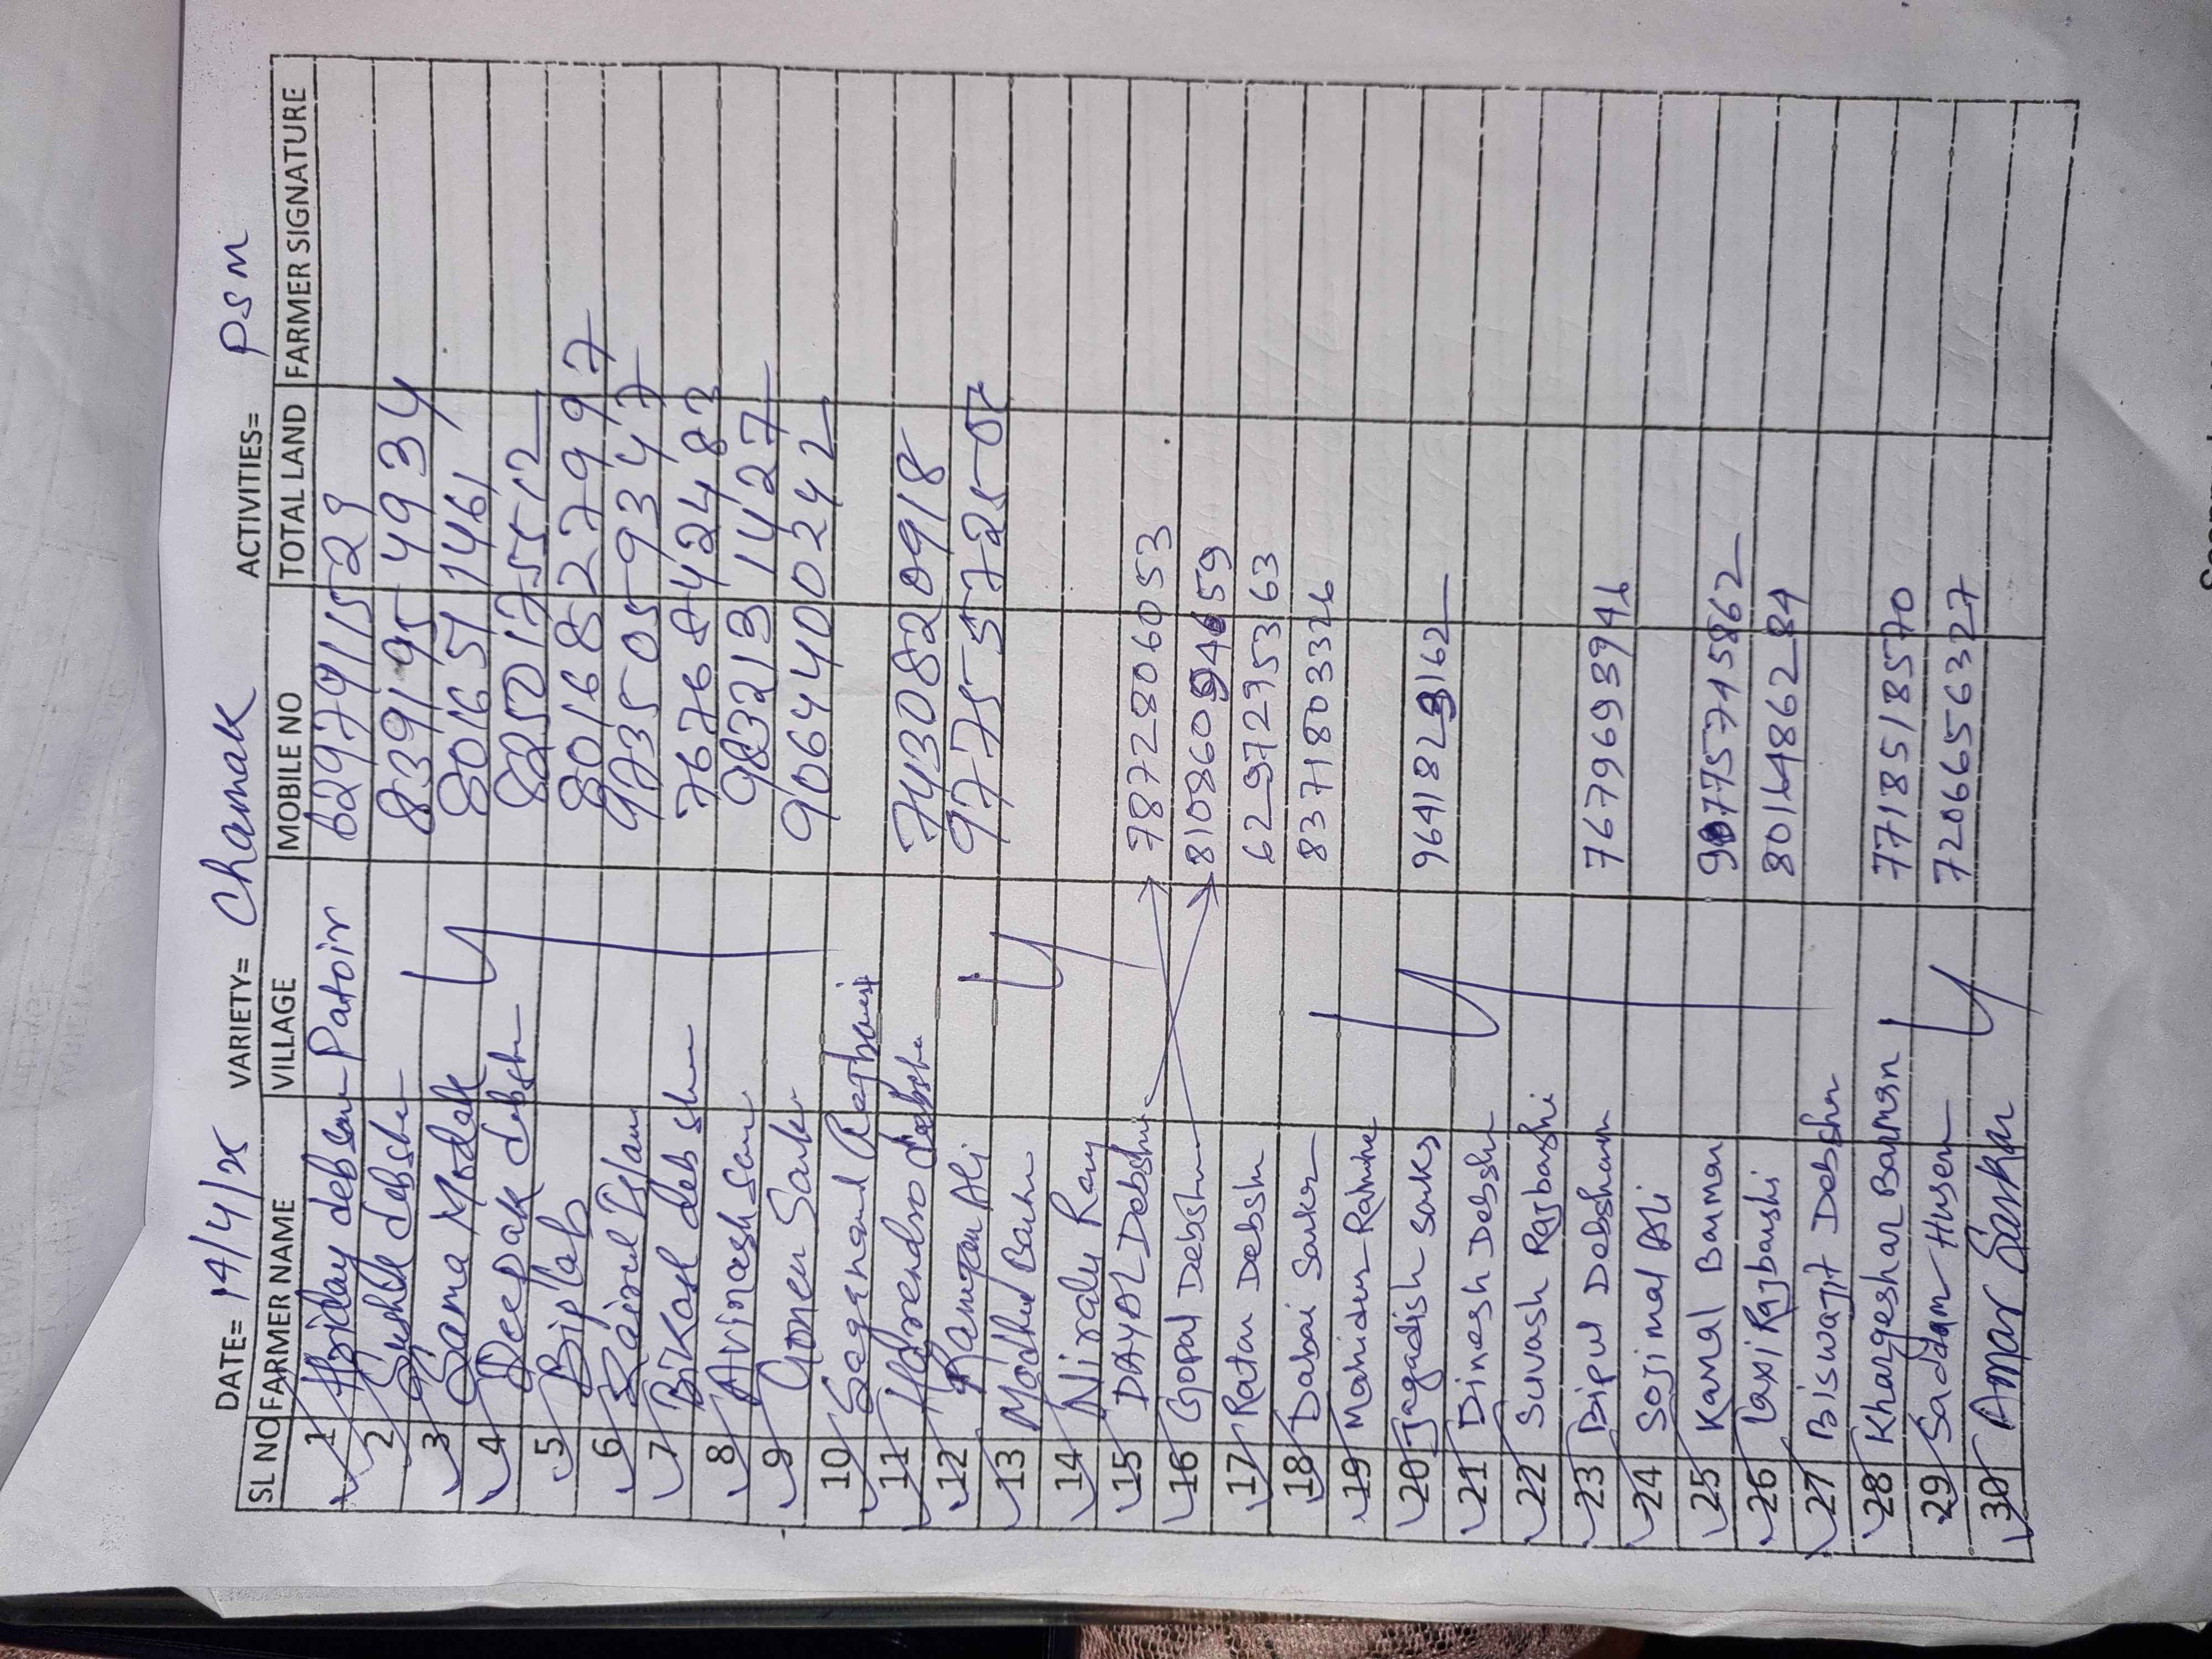 DATE= 14/4/25 VARIETY= Chamak ACTIVITIES= PSM
SL NO FARMER NAME VILLAGE MOBILE NO TOTAL LAND FARMER SIGNATURE
1 Hriday debsarm Patoir 6297911529
2 debshr 8391954934
3 Sama Modak 8016511461
4 Deepak debshr 8250175512
5 Biplab 8016827997
6 Rairul Islam 9735059347
7 Bikash debshr 7676742483
8 Avinash Sar 9832131427
9 Gonen Sarkr 9064400242
10 Sagenand Rajbansi
11 Harendro debshr 7430820918
12 Ramzan Ali
13 Madhu Barmn
14 Niradu Ray
15 DAYAL Debshr 7872806053
16 Gopal Debshr
17 Ratan Debshr 6297295363
18 Dabai Sarker 8371803326
19 Mahidur Rahman
20 Jagadish Sarkr
21 Dinesh Debshr
22 Suvash Rajbanshi
23 Dipul Debsharm 7679693946
24 Sojimal Ali
25 Kamal Barman
26 Laxi Rajbanshi 8016486284
27 Biswajit Debshr
28 Khargeshar Barman 7718518570
29 Saddam Husen 7206656327
30 Amar Sarkar